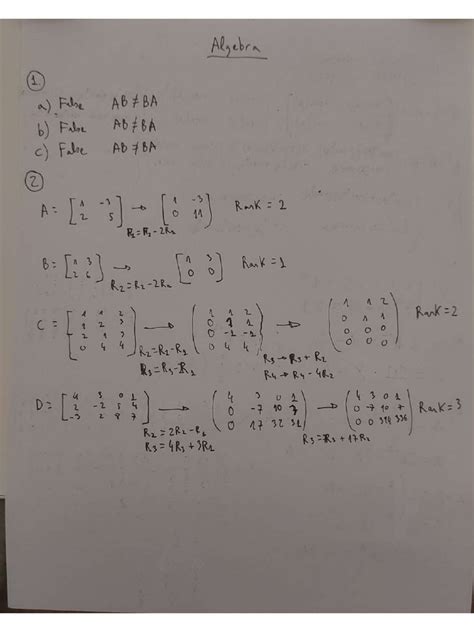 Algebra
1
a) False AB ≠ BA
b) False AB ≠ BA
c) False AB ≠ BA
2
A = [1 -3; 2 5] → [1 -3; 0 11] Rank = 2
R2 = R2 - 2R1
B = [1 3; 2 6] → [1 3; 0 0] Rank = 1
R2 = R2 - 2R1
C = [1 1 2; 1 2 3; 2 1 3; 0 4 4] → (1 1 2; 0 1 1; 0 -1 -1; 0 4 4) → (1 1 2; 0 1 1; 0 0 0; 0 0 0) Rank = 2
R2 = R2 - R1
R3 = R3 - R1
R3 → R3 + R2
R4 → R4 - 4R2
D = [4 3 0 1; 2 -2 5 4; -3 2 8 7] → (4 3 0 1; 0 -7 10 7; 0 17 32 31) → (4 3 0 1; 0 -7 10 7; 0 0 394 336) Rank = 3
R2 = 2R2 - R1
R3 = 4R3 + 3R1
R3 = R3 + 17R2